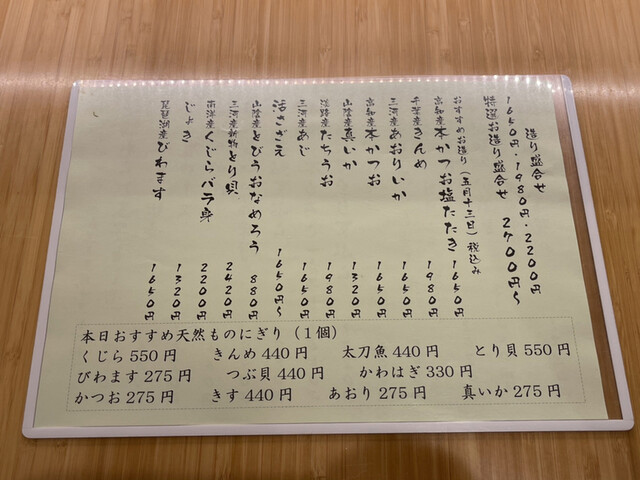 造り盛合せ
1650円・1980円・2200円
特選お造り盛合せ 2700円〜
おすすめお造り(五月十三日)税込み
高知産本かつお塩たたき 1650円
千葉産きんめ 1980円
三河産あおりいか 1650円
高知産本かつお 1650円
山陰産真いか 1320円
淡路産たちうお 1980円
三河産あじ 1650円
活さざえ 1650円〜
山陰産とびうおなめろう 880円
三河産新物とり貝 2420円
南洋産くじらバラ身 2200円
じょき 1320円
琵琶湖産びわます 1650円
本日おすすめ天然ものにぎり(1個)
くじら550円 きんめ440円 太刀魚440円 とり貝550円
びわます275円 つぶ貝440円 かわはぎ330円
かつお275円 きす440円 あおり275円 真いか275円